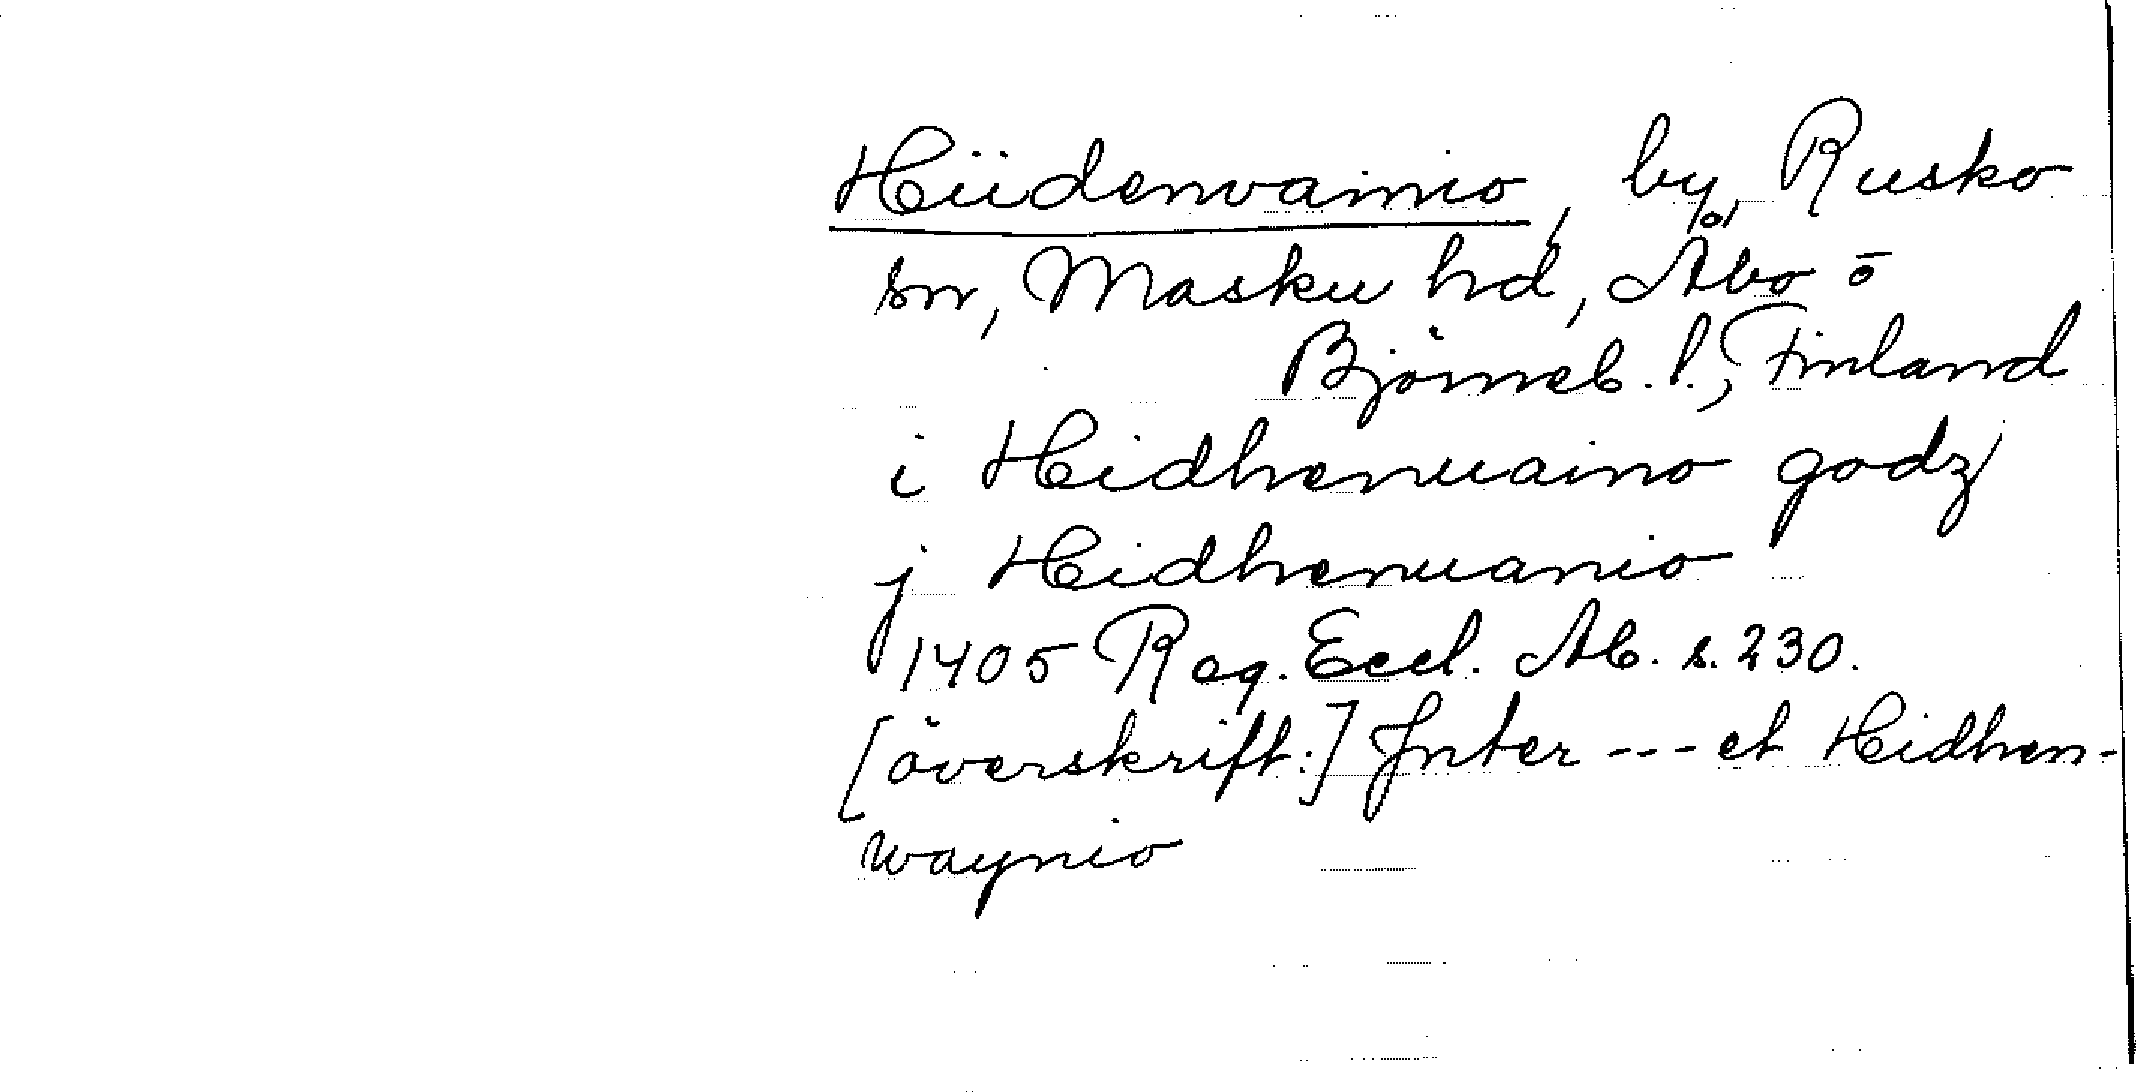 Hiidenvainio, by, Rusko
sn, Masku hd, Åbo o
Björneb. l., Finland
i Hidhenuaino godz
j Hidhenuanio
1405 Reg. Eccl. Ab. s. 230.
[överskrift:] Inter --- et Hidhen-
waynio